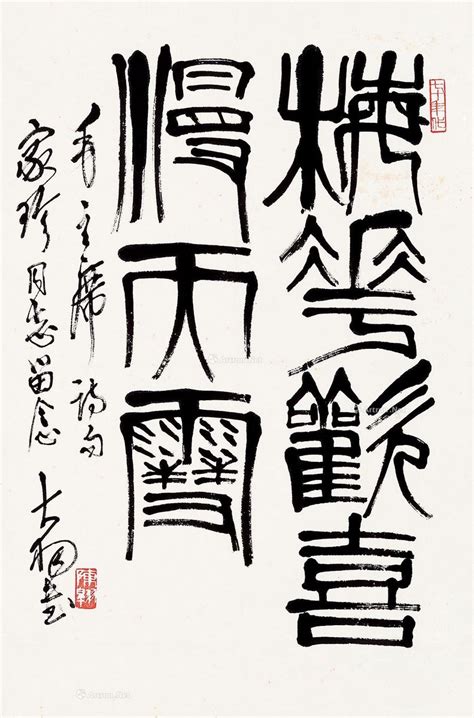 梅花歡喜
漫天雪
毛主席詩句
家珍同志留念
大羽書